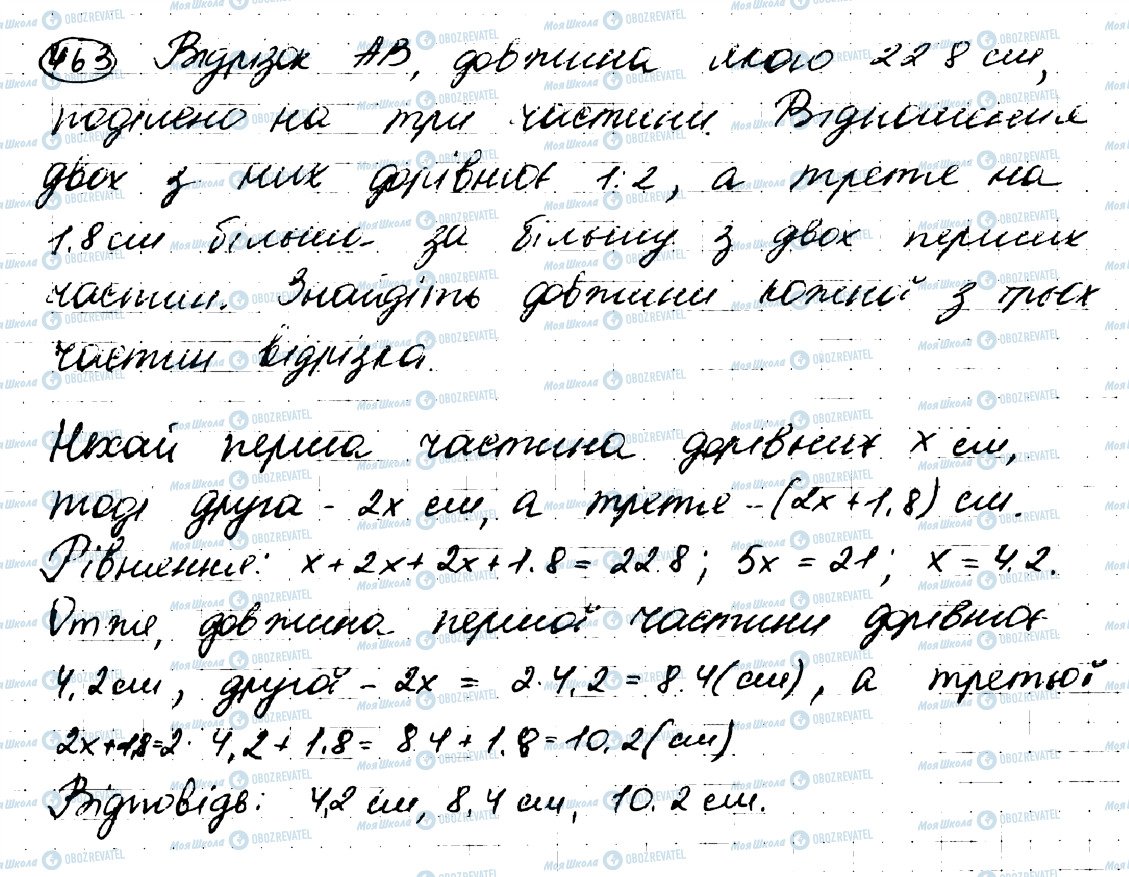 463 Відрізок АВ, довжина якого 22 8 см,
поділено на три частини. Відношення
двох з них дорівнює 1:2, а третя на
1.8 см більша за більшу з двох перших
частин. Знайдіть довжини кожної з трьох
частин відрізка.
Нехай перша частина дорівнює х см,
тоді друга - 2х см, а третя - (2х+1.8) см.
Рівняння: х+2х+2х+1.8=22 8; 5х=21; х=4.2.
Отже, довжина першої частини дорівнює
4,2 см, другої - 2х = 2·4,2=8.4(см), а третьої
2х+1,8=2·4,2+1.8=8 4+1.8=10.2(см)
Відповідь: 4,2 см, 8,4 см, 10.2 см.